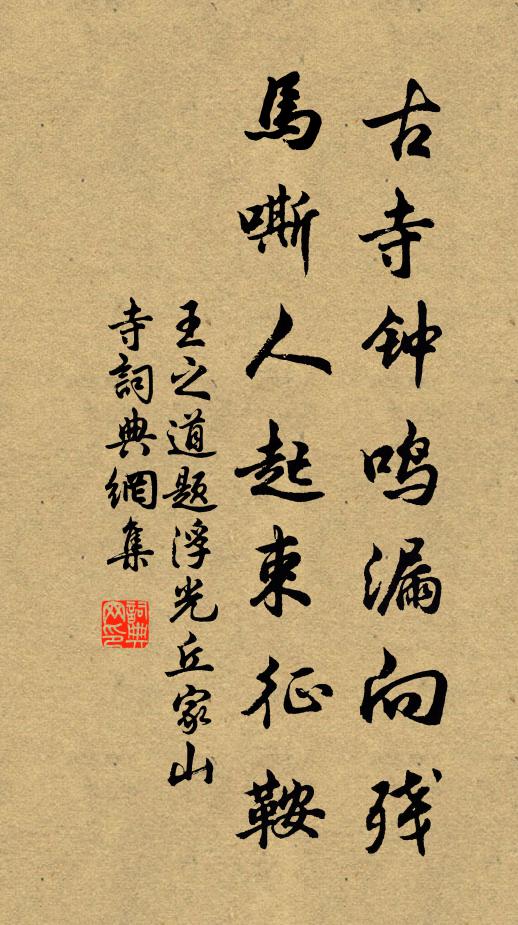 古寺钟鸣漏向残
馬嘶人起束征鞍
王之道题浮光丘家山
寺詞典網集
詞典网印